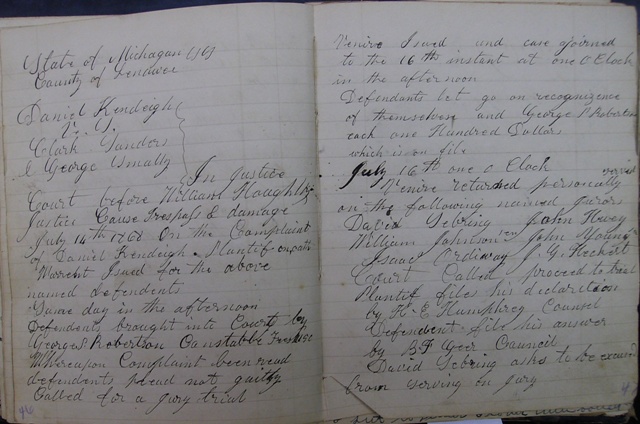 State of Michagan
County of Lenawee
Daniel Kendeigh
vs
Clark Sanders
& George
In Justice
Court before William Houghtby
Justice Cause Trespass & damage
July 14th 1868 On the Complaint
of Daniel Kendeigh Plantif on oath
Warrent Isued for the above
named defendents
Same day in the afternoon
Defendents brought into Court by
George S Robertson Constabbe
Whereupon Complaint been read
defendents plead not guilty
Called for a jury trial
Venire Isued and case ajorned
to the 16th instant at one O Clock
in the afternoon
Defendants let go on recognizence
of themselves and George S Robertson
each one Hundred Dollars
which is on file
July 16th one O Clock
Venire returned personally served
on the following named jurors
David Sebring John Huey
William Johnson John Young
Isaac Ordiway J. G. Heckert
Court Called proceed to trial
Plantif files his declaration
by H. E Humphrey Counsel
Defendent file his answer
by B F Geer Council
David Sebring asks to be excused
from serving on jury